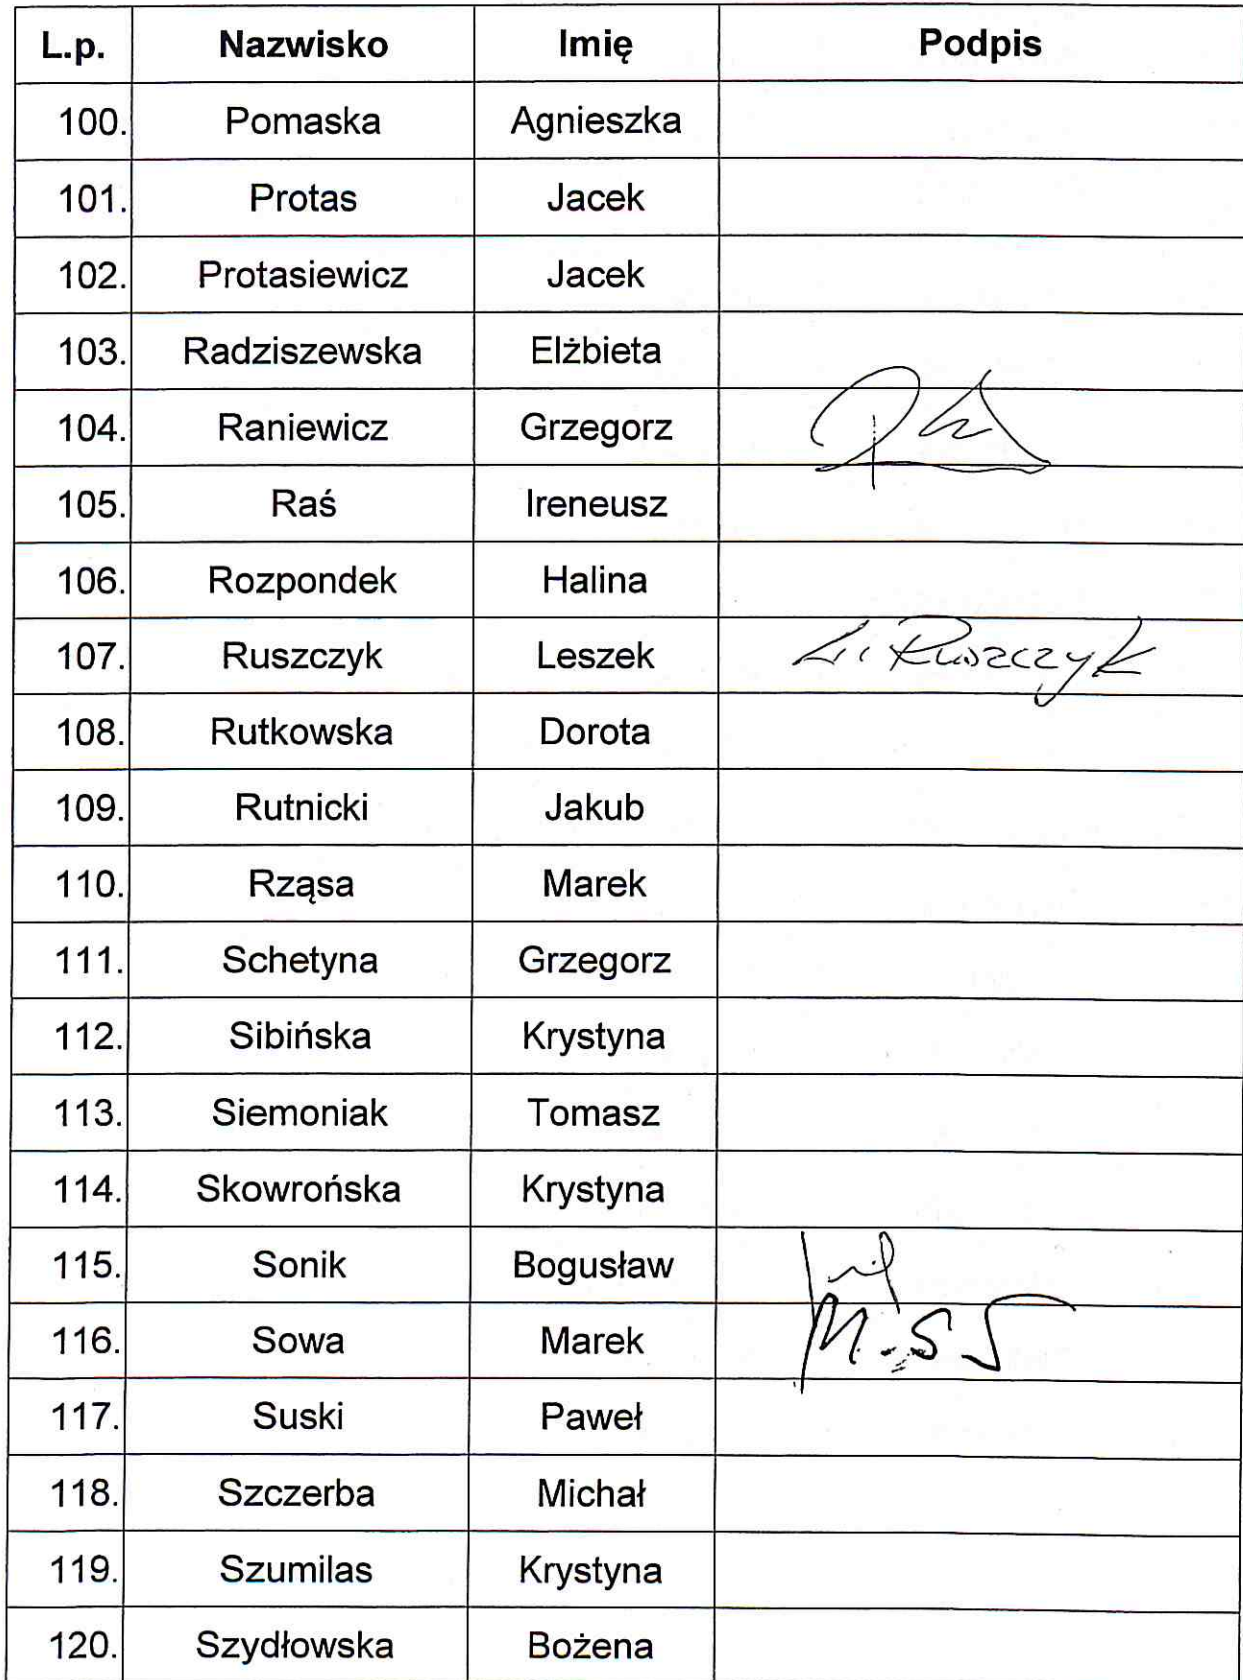 L.p. Nazwisko Imię Podpis
100. Pomaska Agnieszka
101. Protas Jacek
102. Protasiewicz Jacek
103. Radziszewska Elżbieta
104. Raniewicz Grzegorz
105. Raś Ireneusz
106. Rozpondek Halina
107. Ruszczyk Leszek L. Ruszczyk
108. Rutkowska Dorota
109. Rutnicki Jakub
110. Rząsa Marek
111. Schetyna Grzegorz
112. Sibińska Krystyna
113. Siemoniak Tomasz
114. Skowrońska Krystyna
115. Sonik Bogusław
116. Sowa Marek
117. Suski Paweł
118. Szczerba Michał
119. Szumilas Krystyna
120. Szydłowska Bożena